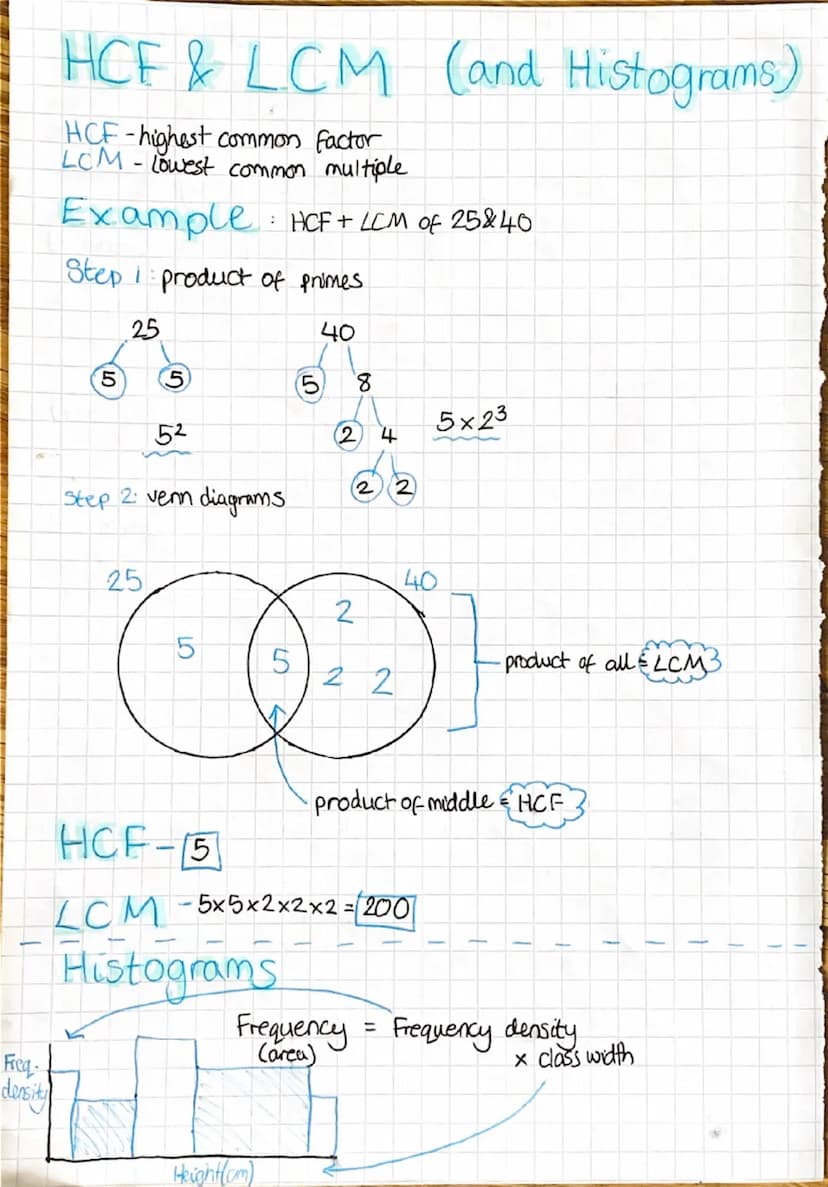 HCF & LCM (and Histograms)
HCF - highest common factor
LCM - lowest common multiple
Example : HCF + LCM of 25 & 40
Step 1 : product of primes
25
40
5 5
5 8
5²
2 4
5 x 2³
2 2
Step 2: venn diagrams
25
40
5
5
2
2 2
product of all = LCM
product of middle = HCF
HCF - 5
LCM - 5x5x2x2x2 = 200
Histograms
Frequency = Frequency density
(area) x class width
Freq.
density
Height(cm)